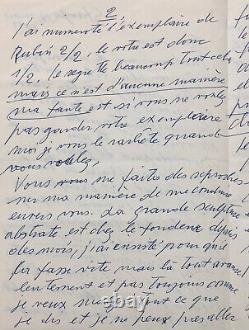 2
J'ai numeroté l'exemplaire de
Rubin 2/2, le votre est donc
1/2, Je regrette beaucoup tout cela
mais ce n'est d'aucune manière
ma faute et si vous ne voulez
pas garder votre exemplaire
moi je vous le rachète quand
vous voulez,
Vous vous me faites des reproches
sur ma manière de me conduire
envers vous. La grande sculpture
abstraite est chez le fondeur depuis
des mois, j'ai insisté pour qu'il
la fasse vite mais là tout avance
lentement et pas toujours comme
je veux malgré tout ce que
je dis et je ne peux pas aller